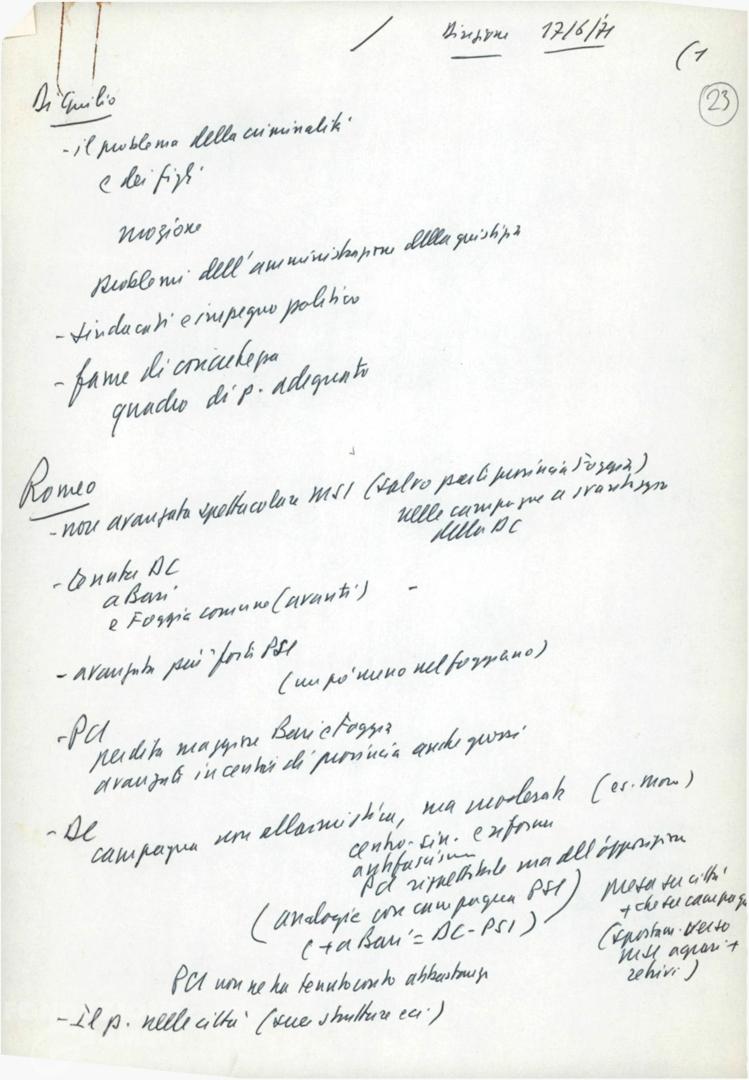 Direzione 17/6/71
(1
23
Di Giulio
- il problema della criminalità
e dei figli
mozione
problemi dell'amministrazione della giustizia
- sindacati e impegno politico
- fame di concretezza
quadro di p. adeguato
Romeo
- non avanzata spettacolare MSI (salvo parti provincia Foggia)
nelle campagne a svantaggio
della DC
- tenuta DC
a Bari
e Foggia comune (avanti)
- avanzata più forte PSI
(un pò meno nel foggiano)
- PCI
perdita maggiore Bari e Foggia
avanzati in centri di provincia anche grossi
- DC
campagna non allarmistica, ma moderata (es. Moro)
centro-sin. e riforme
antifascismo
PCI rispettabile ma all'opposizione
(analogie con campagna PSI)
(+ a Bari = DC-PSI)
presa su città
+ che su campagna
(spostam. verso
MSI agrari +
retrivi)
PCI non ne ha tenuto conto abbastanza
- Il p. nelle città (sue strutture ecc.)